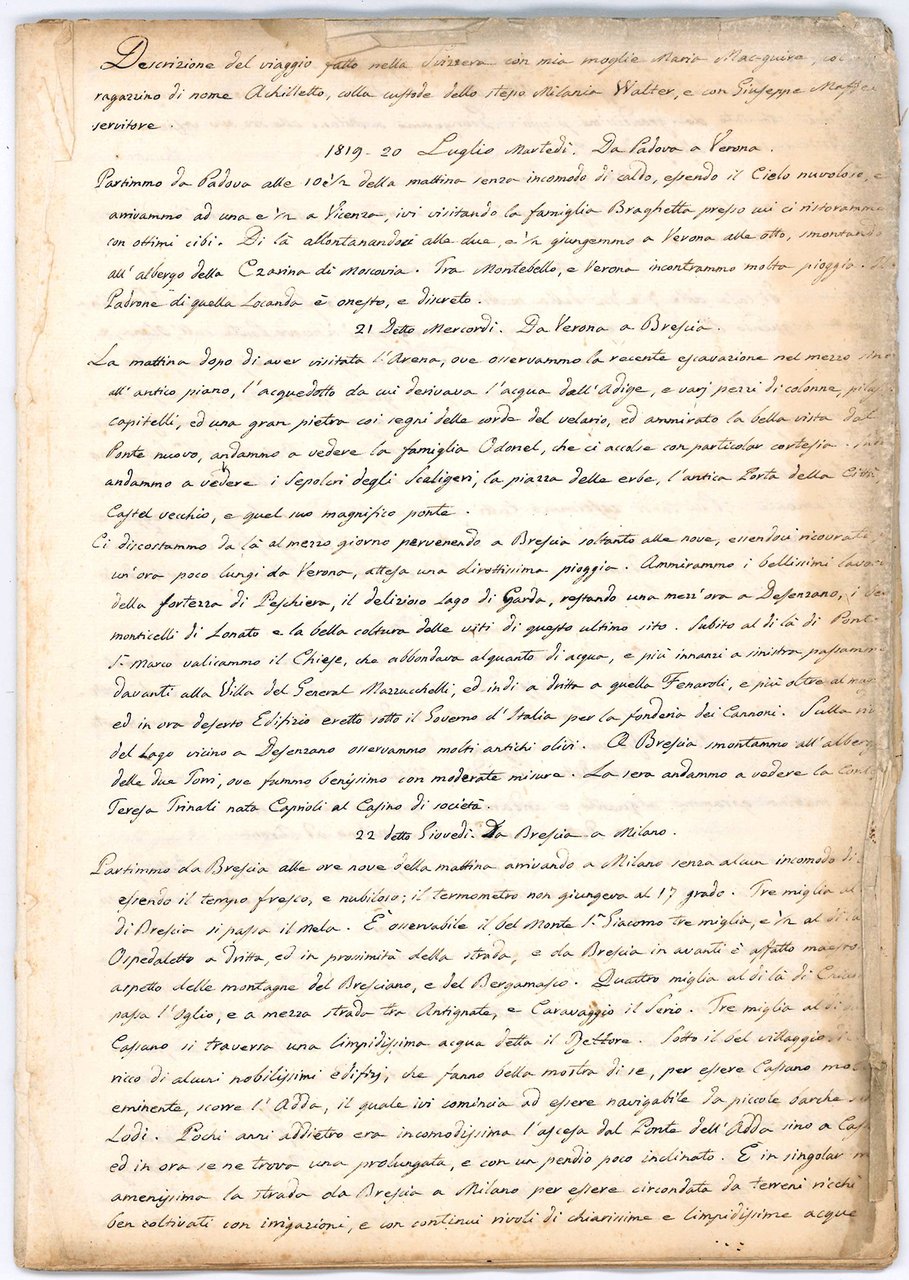 Descrizione del viaggio fatto nella Svizzera con mia moglie Maria Mac-quire, col
ragazzino di nome Achilletto, colla custode dello stesso Milania Walter, e con Giuseppe Maffei
servitore.
1819 - 20 Luglio Martedì. Da Padova a Verona.
Partimmo da Padova alle 10 e ½ della mattina senza incomodo di caldo, essendo il Cielo nuvoloso, e
arrivammo ad una e ½ a Vicenza, ivi visitando la famiglia Braghetta presso cui ci ristorammo
con ottimi cibi. Di là allontanandoci alle due, e ½ giungemmo a Verona alle otto, smontando
all'albergo della Czarina di Moscovia. Tra Montebello, e Verona incontrammo molta pioggia. Il
Padrone di quella Locanda è onesto, e discreto.
21 Detto Mercordì. Da Verona a Brescia.
La mattina dopo di aver visitata l'Arena, ove osservammo la recente escavazione nel mezzo sino
all'antico piano, l'acquedotto da cui derivava l'acqua dall'Adige, e varj pezzi di colonne,
capitelli, ed una gran pietra coi segni delle corde del velario, ed ammirato la bella vista dal
Ponte nuovo, andammo a vedere la famiglia Odonel, che ci accolse con particolar cortesia.
andammo a vedere i Sepolcri degli Scaligeri, la piazza delle erbe, l'antica Porta della Città,
Castel vecchio, e quel suo magnifico ponte.
Ci discostammo da là al mezzo giorno pervenendo a Brescia soltanto alle nove, essendoci ricovrati
un'ora poco lungi da Verona, attesa una dirottissima pioggia. Ammirammo i bellissimi lavori
della fortezza di Peschiera, il delizioso Lago di Garda, restando una mezz'ora a Desenzano, i
monticelli di Lonato e la bella coltura delle viti di questo ultimo sito. Subito al di là di Ponte
S. Marco valicammo il Chiese, che abbondava alquanto di acqua, e più innanzi a sinistra passammo
davanti alla Villa del General Mazzucchelli, ed indi a dritta a quella Fenaroli, e più oltre al
ed in ora deserto Edifizio eretto sotto il Governo d'Italia per la fonderia dei Cannoni. Sulla riva
del Lago vicino a Desenzano osservammo molti antichi olivi. A Brescia smontammo all'albergo
delle due Torri, ove fummo benissimo con moderate misure. La sera andammo a vedere la Contessa
Teresa Trinali nata Capnoli al Casino di società.
22 detto Giovedì. Da Brescia a Milano.
Partimmo da Brescia alle ore nove della mattina arrivando a Milano senza alcun incomodo di
essendo il tempo fresco, e nubiloso; il termometro non giungeva al 17 grado. Tre miglia al
di Brescia si passa il Mela. È osservabile il bel Monte S. Giacomo tre miglia, e ½ al di là
Ospedaletto a dritta, ed in prossimità della strada, e da Brescia in avanti è affatto maestoso
aspetto delle montagne del Bresciano, e del Bergamasco. Quattro miglia al di là di
passa l'Oglio, e a mezza strada tra Antignate, e Caravaggio il Serio. Tre miglia al di
Cassano si traversa una limpidissima acqua detta il Rettore. Sotto il bel villaggio di
rico di alcuni nobilissimi edifizj, che fanno bella mostra di se, per essere Cassano molto
eminente, scorre l'Adda, il quale ivi comincia ad essere navigabile da piccole barche
Lodi. Pochi anni addietro era incomodissima l'ascesa dal Ponte dell'Adda sino a
ed in ora se ne trova una prolungata, e con un pendio poco inclinato. È in singolar
amenissima la strada da Brescia a Milano per essere circondata da terreni ricchi
ben coltivati con irrigazioni, e con continui rivoli di chiarissime e limpidissime acque